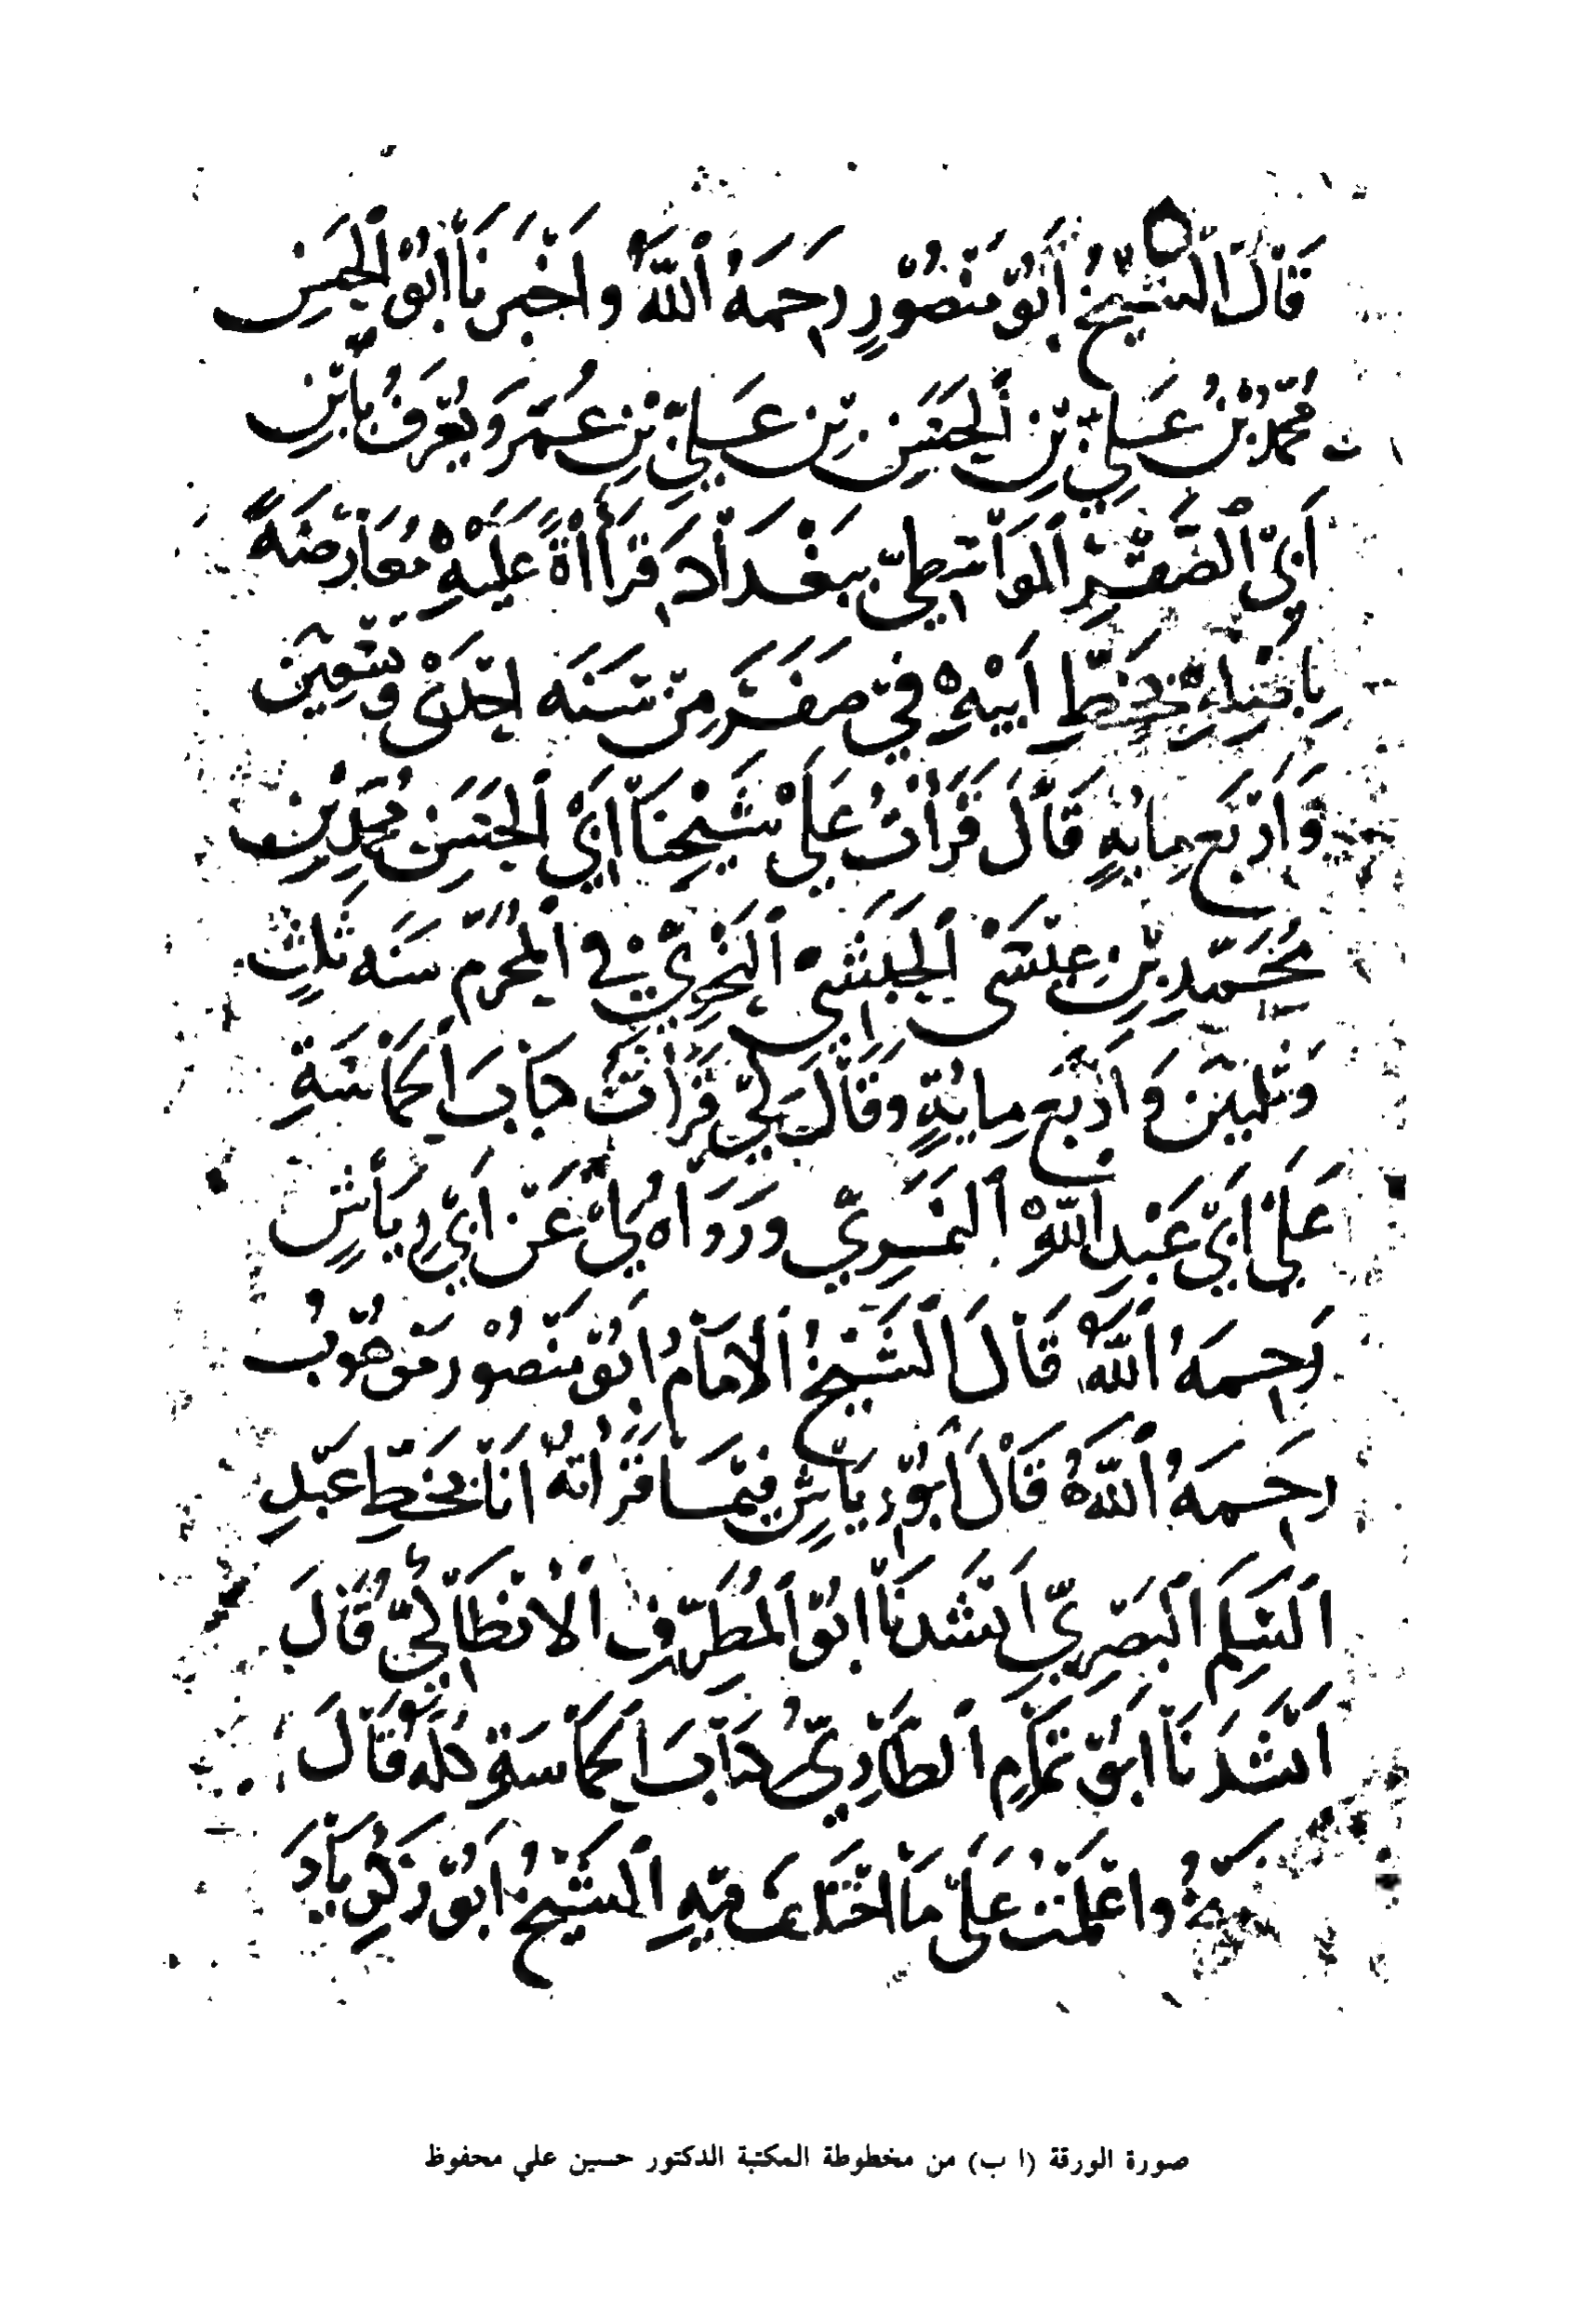 قَالَ الشَّيْخُ أَبُوْ مَنْصُوْرٍ رَحِمَهُ اللّٰهُ وأَخْبَرَنَا أَبُوْ الْحَسَنِ
مُحَمَّدُ بْنُ عَلِيِّ بْنِ الْحَسَنِ بْنِ عَلِيِّ بْنِ عُمَرَ وَيُعْرَفُ بِابْنِ
أَبِي الصَّقْرِ الْوَاسِطِيِّ بِبَغْدَادَ قِرَاأَةً عَلَيْهِ مُعَارَضَةً
بِأَصْلِهِ بِخَطِّ أَبِيْهِ فِي صَفَرَ مِنْ سَنَة إِحْدَى وَتِسْعِيْنَ
وَأَرْبَع مِايَةٍ قَالَ قَرَأْتُ عَلَى شَيْخِنَا أَبِي الْحَسَنِ مُحَمَّدِ بْنِ
مُحَمَّدِ بْنِ عِيْسَى الْحَبَشِيْ النَّحْوِيِّ فِي الْمُحَرَّم سَنَة ثَلٰثٍ
وَثَلٰثِيْنَ وَأَرْبَع مِايَةٍ وَقَالَ لِي قَرَأْتُ كِتَابَ الْحَمَاسَةِ
عَلَى أَبِي عَبْدِ اللّٰهِ النَّمَرِيِّ وَرَوَاهُ لِي عَنْ أَبِي رِيَاشٍ
رَحِمَهُ اللّٰهُ قَالَ الشَّيْخُ الْإِمَامُ أَبُوْ مَنْصُوْر مَوْهُوْبُ
رَحِمَهُ اللّٰهُ قَالَ أَبُوْ رِيَاشٍ فِيْمَا قَرَأْتُهُ أَنَا بِخَطِّ عَبْدِ
السَّلَم الْبَصْرِيِّ أَنْشَدَنَا أَبُوْ الْمُطَرِّف الْأَنْطَاكِيُّ قَالَ
أَنْشَدَنَا أَبُوْ تَمَّامٍ الطَّائِيُّ كِتَابَ الْحَمَاسَةِ كُلَّهُ قَالَ
واعْلَمْتُ عَلَى مَا اخْتَلَفَ فِيْهِ الشَّيْخُ أَبُوْ زَكَرِيَّا
صورة الورقة (ا ب) من مخطوطة المكتبة الدكتور حسين علي محفوظ